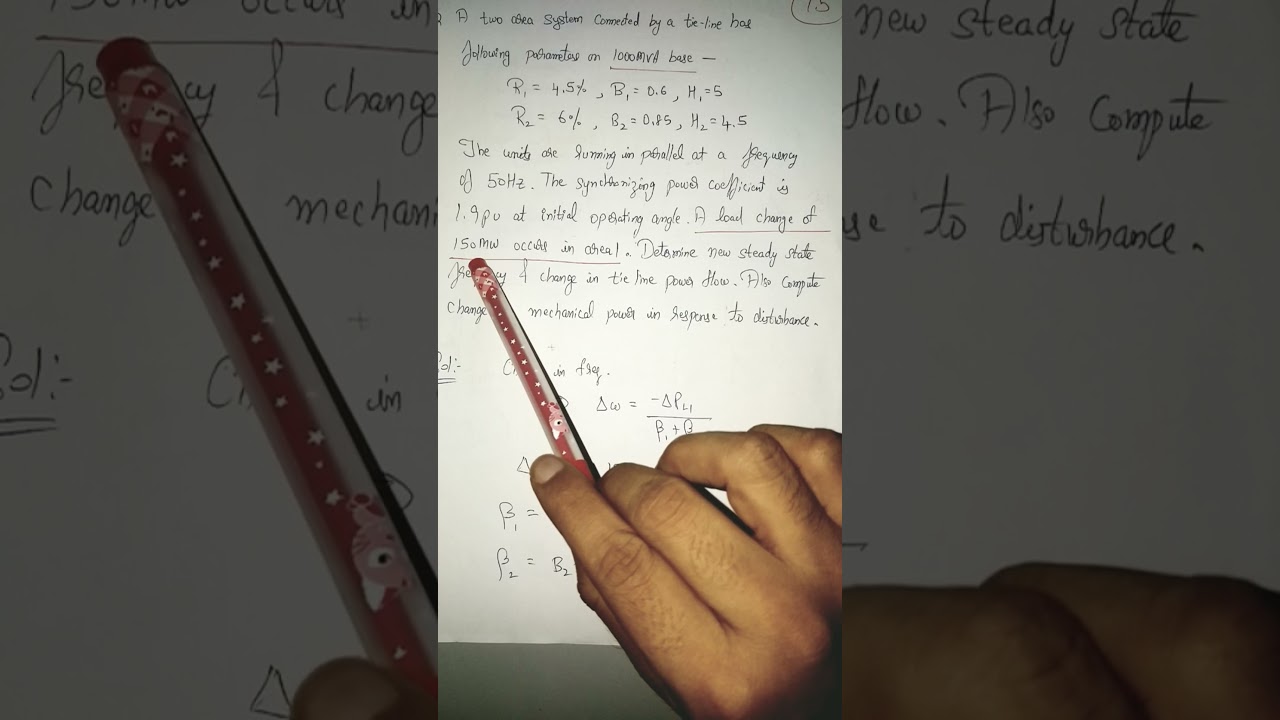 13
A two area system connected by a tie-line has
following parameters on 1000MVA base —
R₁ = 4.5% , B₁ = 0.6 , H₁ = 5
R₂ = 6% , B₂ = 0.85 , H₂ = 4.5
The units are running in parallel at a frequency
of 50Hz. The synchronizing power coefficient is
1.9pu at initial operating angle. A load change of
150MW occurs in area1. Determine new steady state
& change in tie line power flow. Also compute
change mechanical power in response to disturbance.
Sol:-
in freq.
Δω = -ΔP_L1 / β₁ + β
Δ
β₁ =
β₂ = B₂